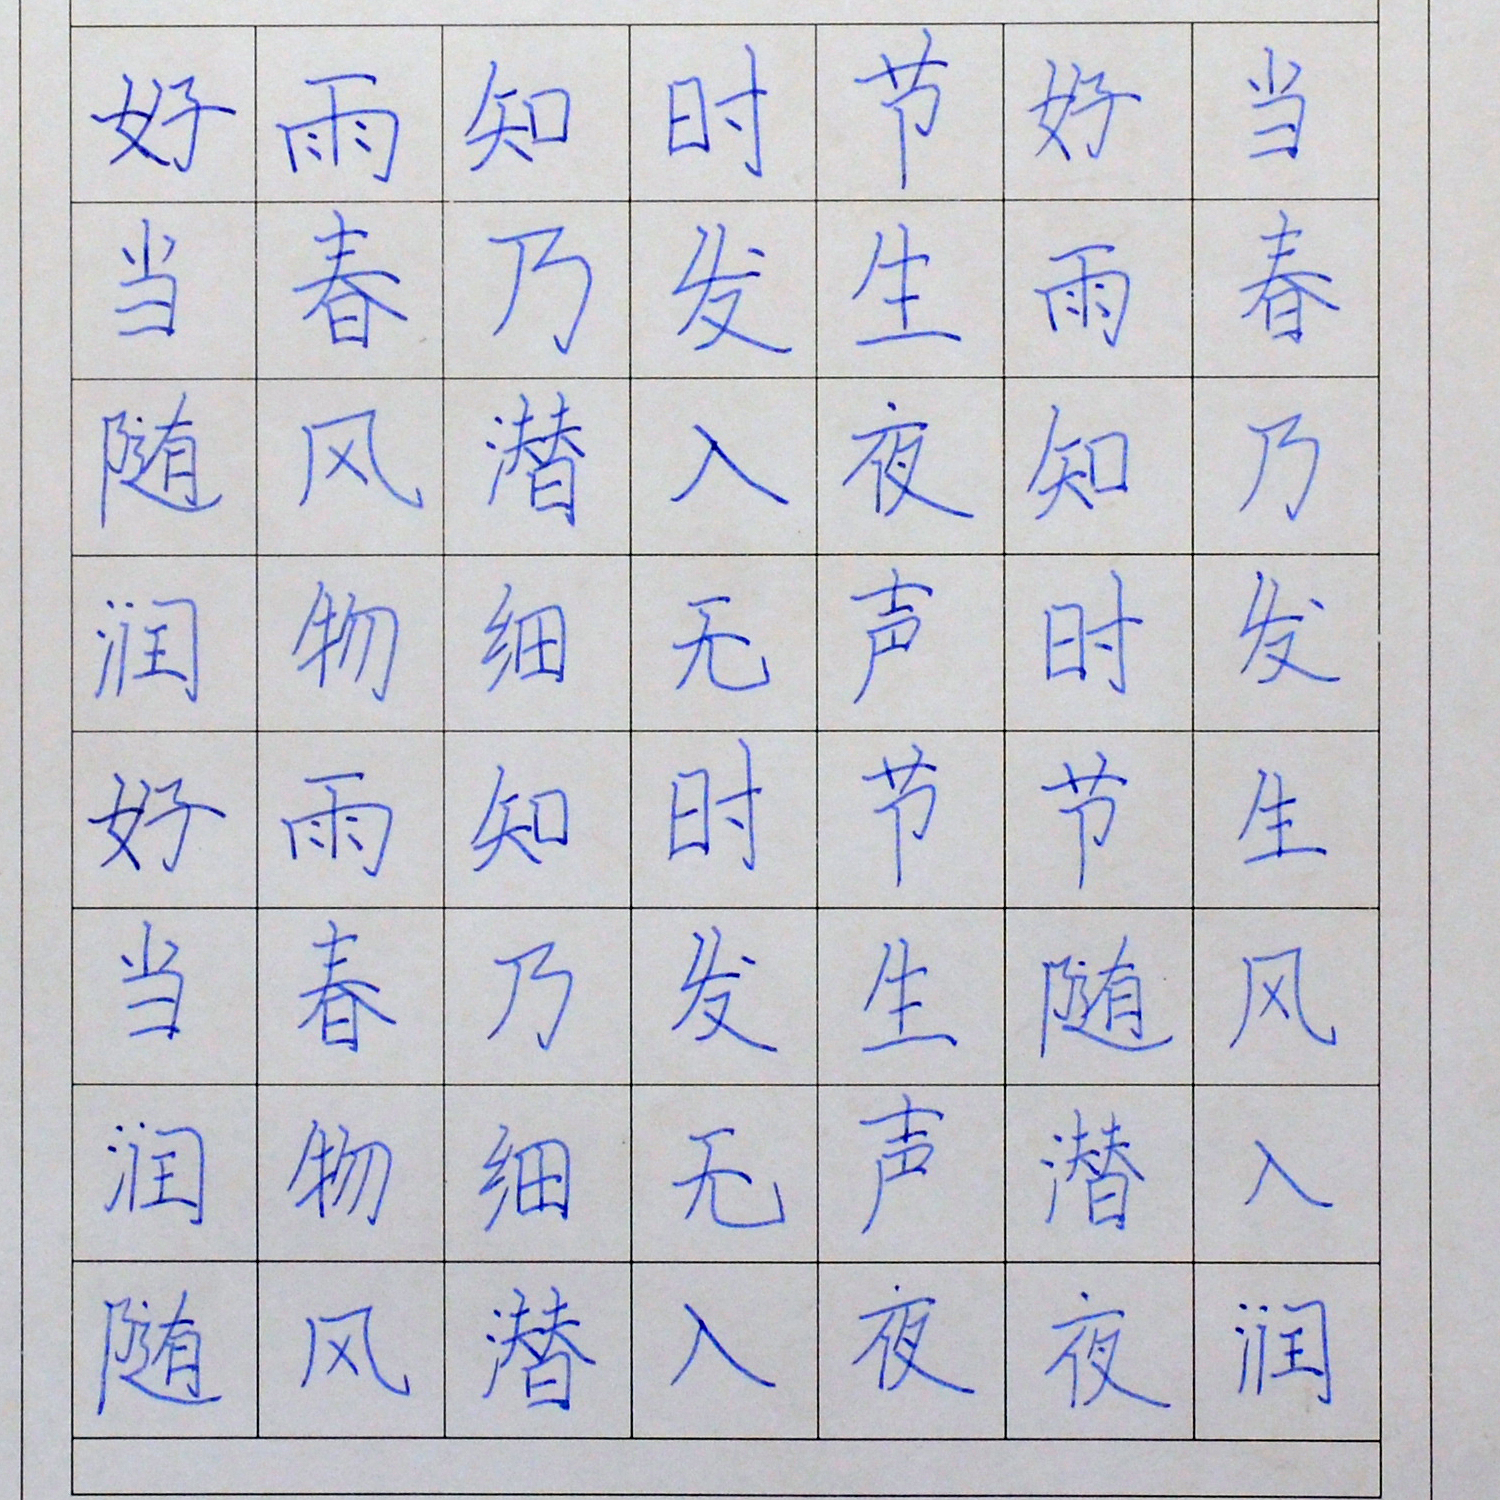 好雨知时节好当
当春乃发生雨春
随风潜入夜知乃
润物细无声时发
好雨知时节节生
当春乃发生随风
润物细无声潜入
随风潜入夜夜润